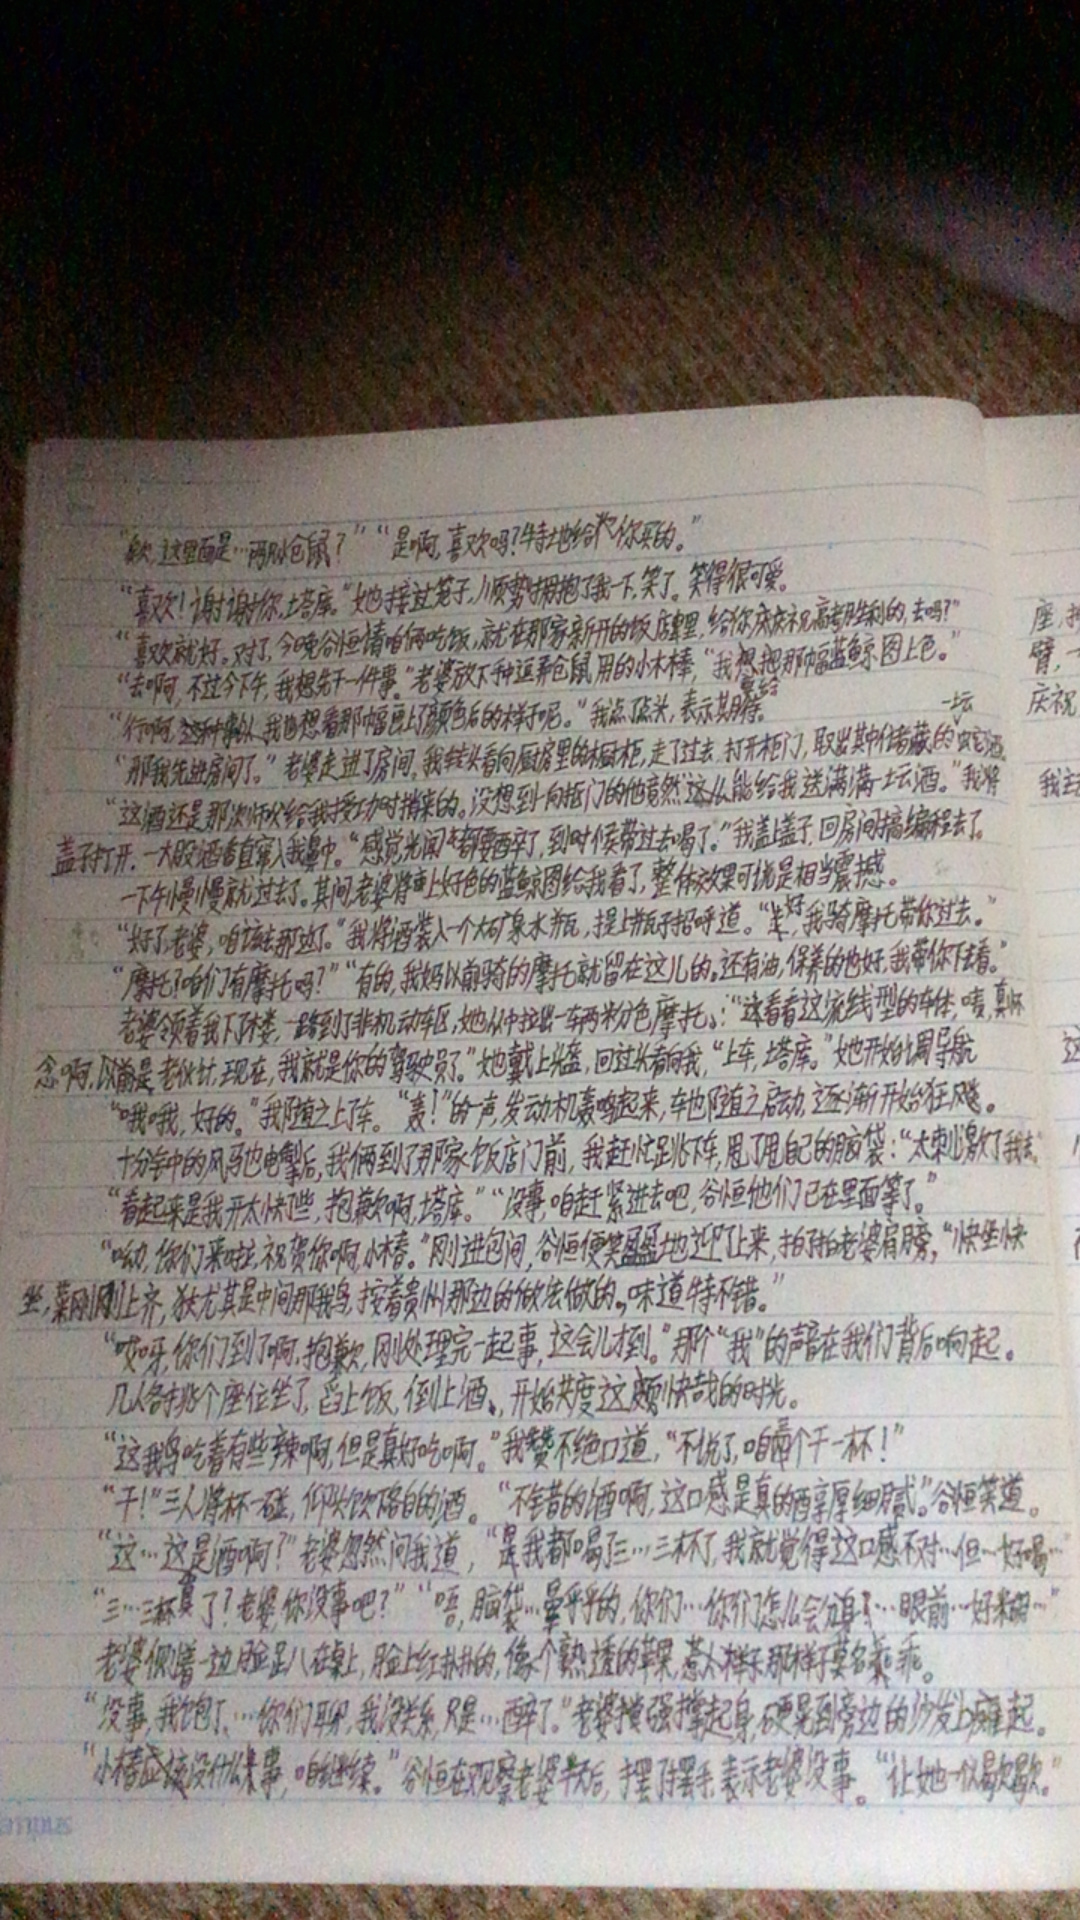 “欸,这里面是…两只小仓鼠?” “是啊,喜欢吗?特地给你买的。”
“喜欢!谢谢你,塔库。”她接过笼子,顺势拥抱了我一下,笑了。笑得很可爱。
“喜欢就好。对了,今晚谷恒请咱俩吃饭,就在那家新开的饭店里,给你庆庆祝高考胜利的,去吗?”
“去啊,不过今下午,我想先干一件事。”老婆放下逗弄仓鼠用的小木棒,“我想把那幅蓝鲸图上色。”
“行啊,我也想看那幅画上了颜色后的样子呢。”我点了点头,表示其期待。
一坛
“那我先进房间了。”老婆走进了房间,我转头看向厨房里的橱柜,走了过去,打开柜门,取出其中储藏的蛇酒。
“这酒还是那次师父给我接功时捎来的。没想到一向抠门的他竟然这么能给我送满满一坛酒。”我将
盖子打开,一大股酒香直窜入我鼻中。“感觉光闻都要醉了,到时候带过去喝了。”我盖上盖子,回房间搞编程去了。
一下午慢慢就过去了。其间,老婆将上好色的蓝鲸图给我看了,整体效果可说是相当震撼。
“好了老婆,咱该去那边了。”我将酒装入一个大矿泉水瓶,提上瓶子招呼道。“好,我骑摩托带你过去。”
“摩托?咱们有摩托吗?” “有的,我妈以前骑的摩托就留在这儿的。还有油,保养的也好,我带你下去看。”
老婆领着我下了楼,一路到了非机动车区,她从中拉出一车两半粉色摩托:“看看这流线型的车体,啧,真怀
念啊,以前是老伙计,现在,我就是你的驾驶员了。”她戴上头盔,回过头看向我,“上车,塔库。”她开始调导航
“哦哦,好的。”我随之上了车。“轰!”的一声,发动机轰鸣起来,车也随之启动,逐渐开始狂飚。
十分钟的风驰电掣后,我俩到了那家饭店门前,我赶忙跳下车,甩了甩自己的脑袋:“太刺激了我去。
“看起来是我开太快了些,抱歉啊,塔库。” “没事,咱赶紧进去吧,谷恒他们已在里面等了。”
“呦,你们来啦,祝贺你啊,小椿。”刚进包间,谷恒便笑盈盈地迎了上来,拍了拍老婆肩膀,“快坐快
坐,菜刚刚上齐,尤其是中间那我鸟,按着贵州那边的做法做的,味道特不错。”
“哎呀,你们到了啊,抱歉,刚处理完一起事,这会儿才到。”那个“我”的声音在我们背后响起。
几人各找个座位坐了,舀上饭,倒上酒,开始共度这颇快哉的时光。
“这我鸟吃着有些辣啊,但是真好吃啊。”我赞不绝口道,“不说了,咱个干一杯!”
“干!”三人将杯一碰,仰头饮下各自的酒。“不错的酒啊,这口感是真的醇厚细腻。”谷恒笑道。
“这…这是酒啊?”老婆忽然问我道,“我都喝了三…三杯了,我就觉得这口感不对…但…好喝…”
“三…三杯了?老婆,你没事吧?” “唔,脑袋…晕乎乎的,你们…你们怎么会分身了…眼前…好米胡…”
老婆侧着一边脸趴在桌上,脸上红扑扑的,像个熟透的苹果,那样子莫名乖乖。
“没事,我饱了…你们聊,我没关系,只是…醉了。”老婆撑强撑起身,硬晃到旁边的沙发上瘫起。
“小椿应该没什么事,咱继续。”谷恒在观察老婆半天后,摆了摆手,表示老婆没事。“让她一个人歇歇。”